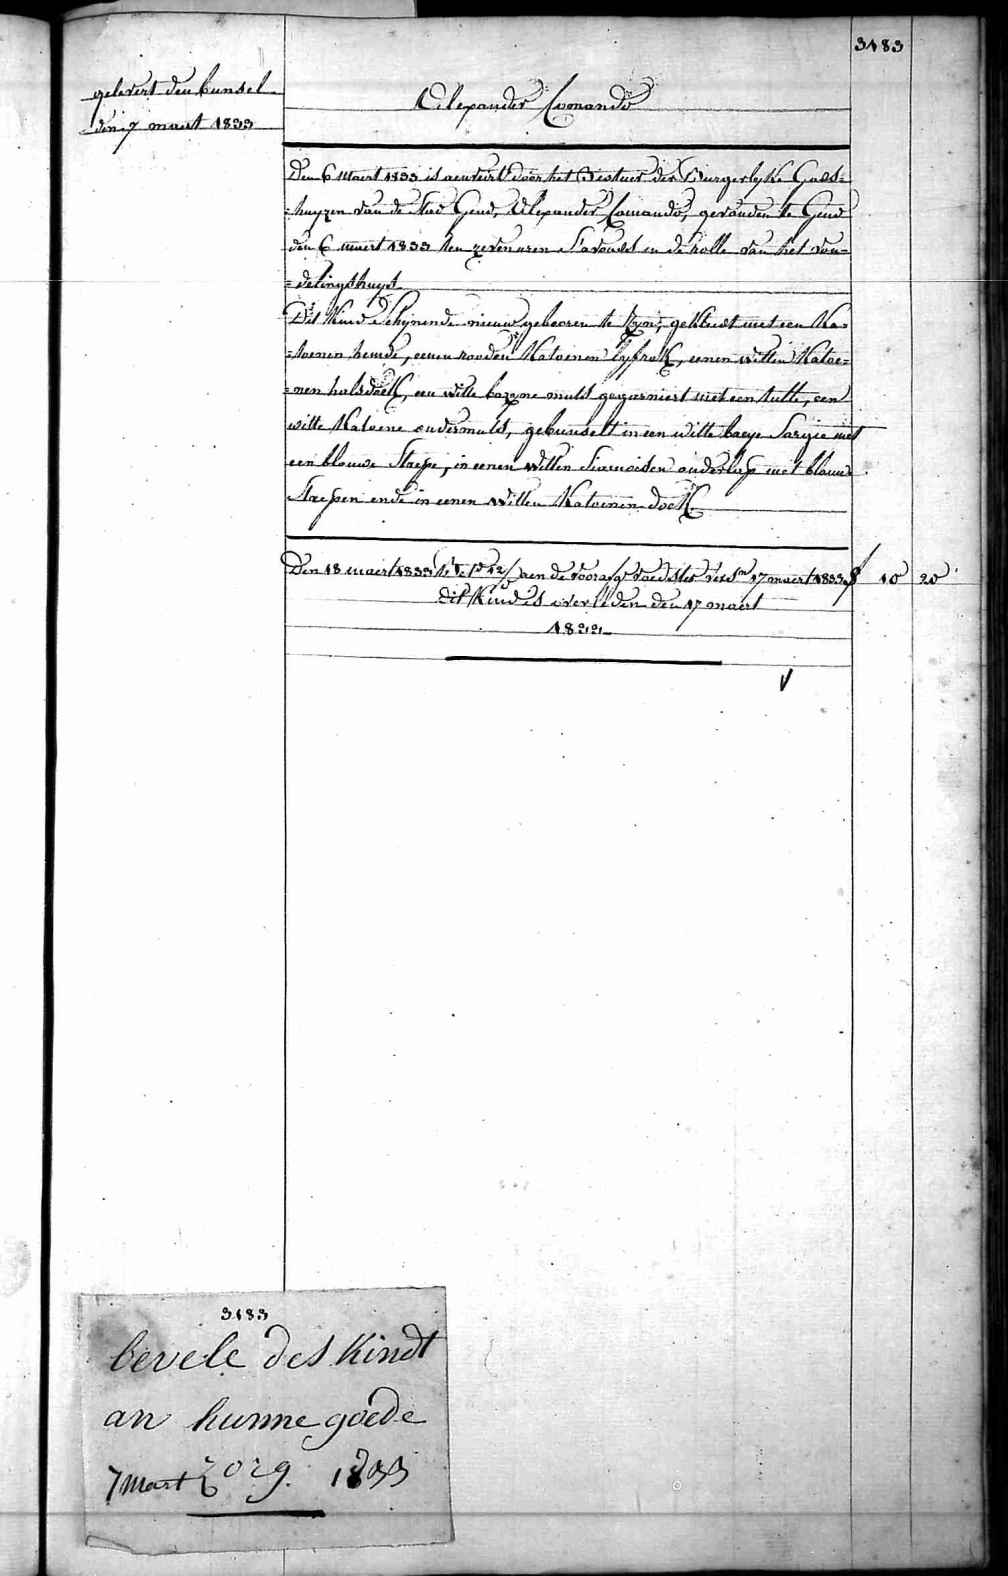 3183
gelevert den bunsel
den 7 maert 1833
Alexander Comando
Den 6 Maert 1833 is aenveird door het Bestuer der Burgerlyke Gods=
=huyzen van de Stad Gend, Alexander Comando, gevonden te Gend
den 6 maert 1833 ten zeven uren s'avonds in de rolle van het von=
=delingshuys.
Dit Kind schynende nieuw gebooren te zyn, gekleed met een Ka=
=toenen hemde, eenen rooden Katoenen lyfrok, eenen witten Katoe=
=nen halsdoek, een witte bazyne muts gegarniert met een tulle, een
witte Katoene ondermuts, gebunselt in een witte baeye Sargie met
een blauwe Strepe, in eenen witten Siamoisen onderlap met blauwe
Strepen ende in eenen witten Katoenen doek.
Den 18 maert 1833 aen de voedster 17 maert 1833 f 10 20
dit Kind is overleden den 17 maert
1833
3183
bevele des Kindt
an hunne goede
7 Mart zorg. 1833